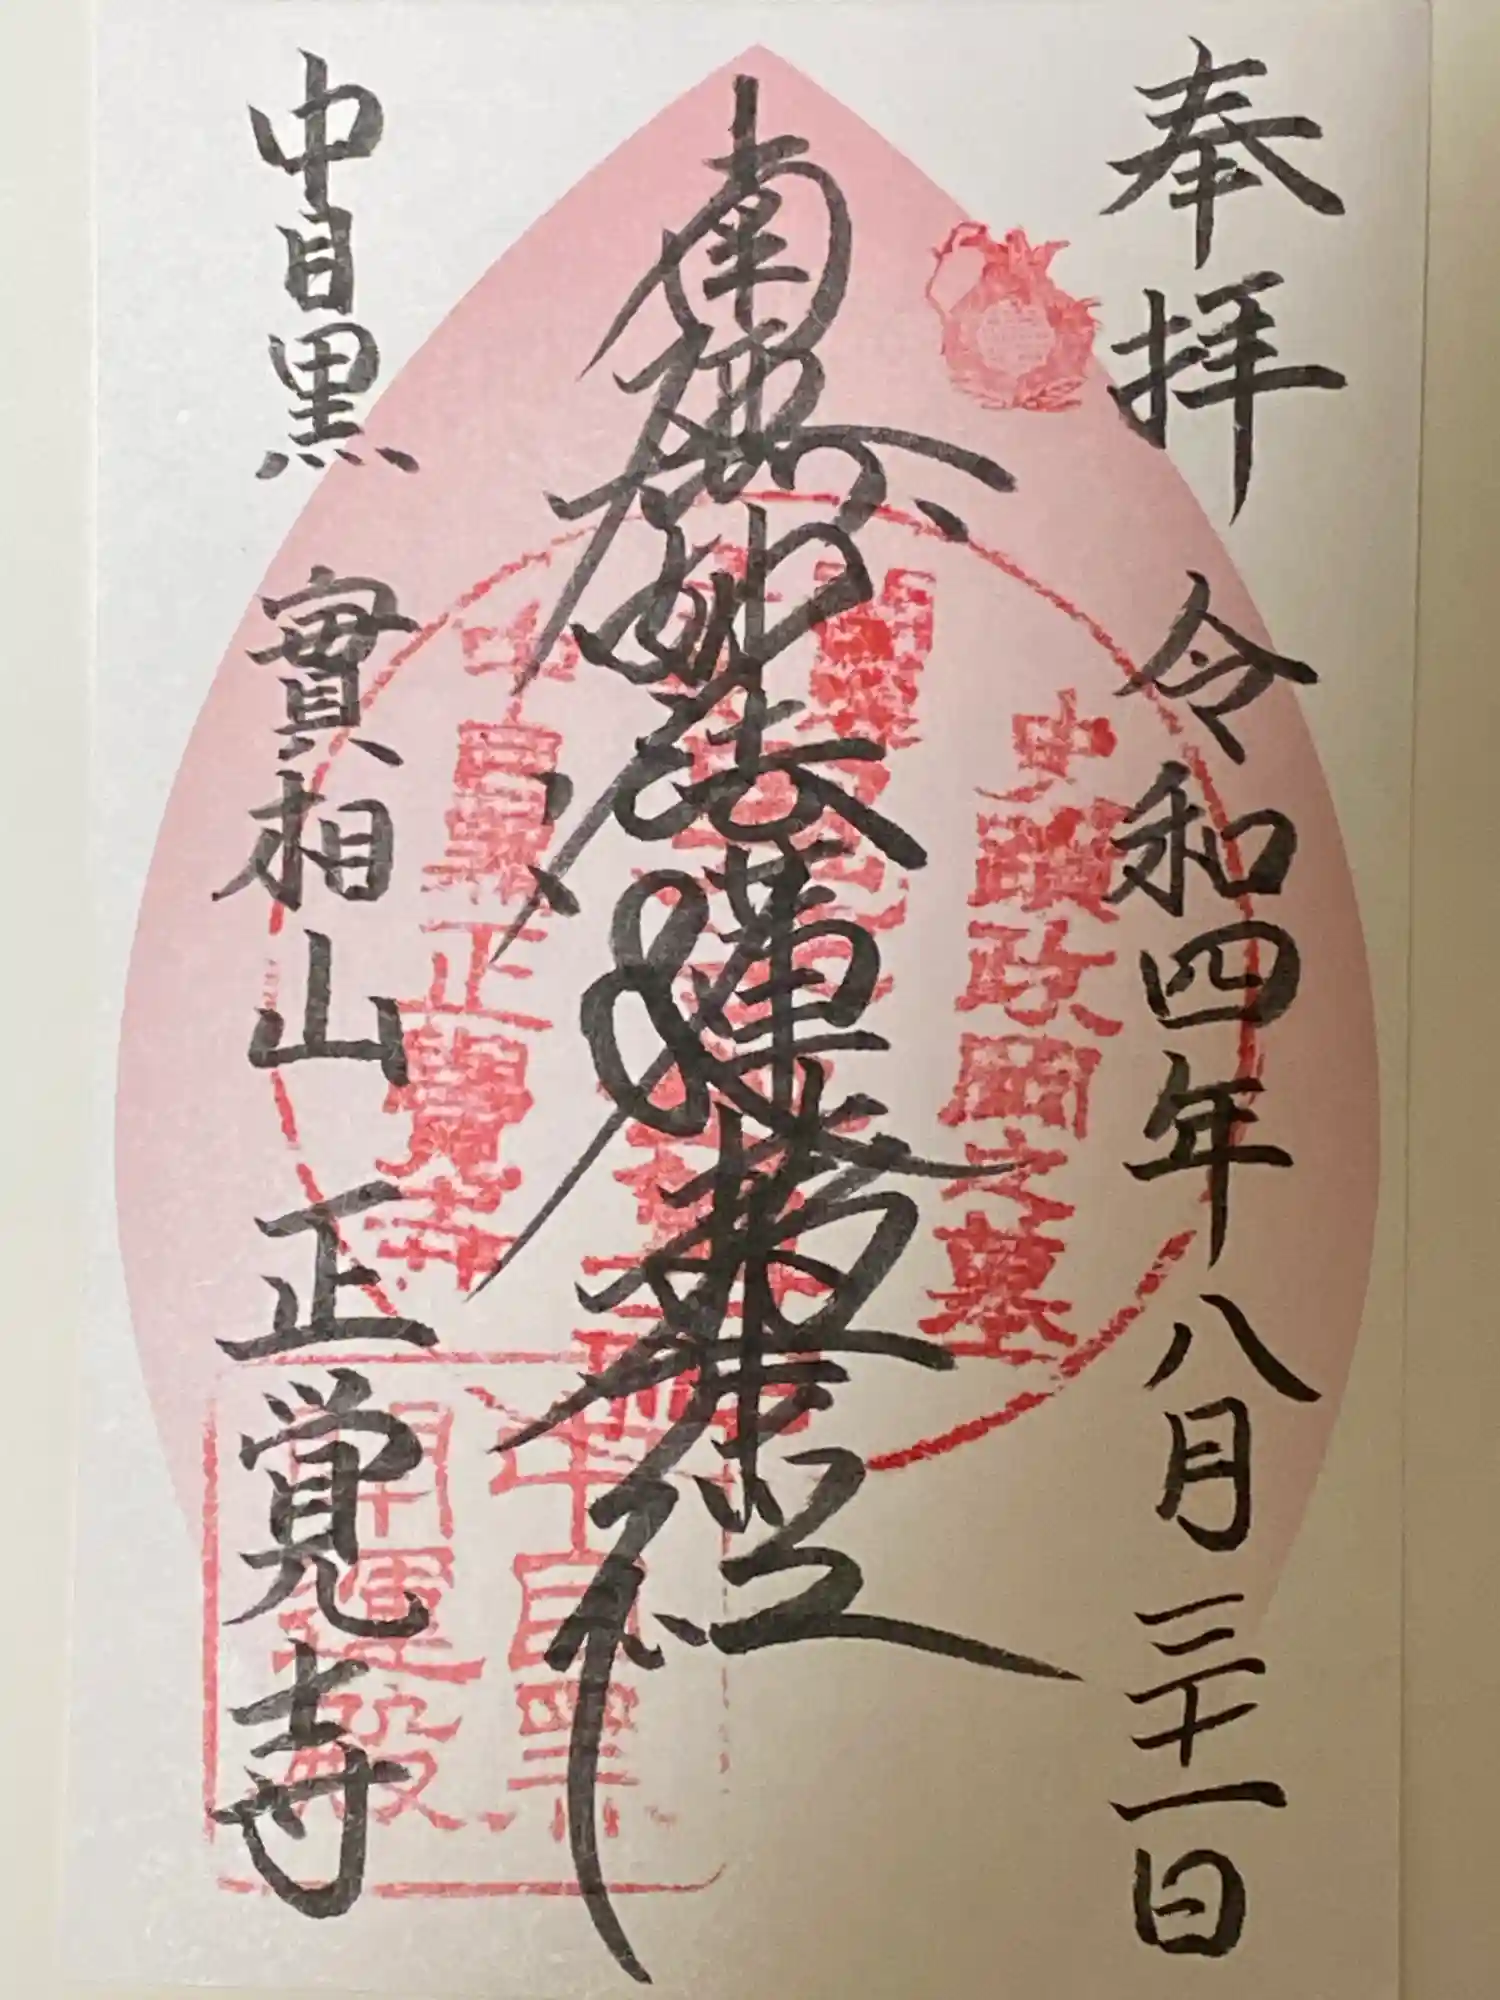 奉拝 令和四年八月三十一日
南無妙法蓮華経
中目黒 實相山 正覚寺
史蹟政岡之墓
中目黒正覺寺
中目黒
開運殿